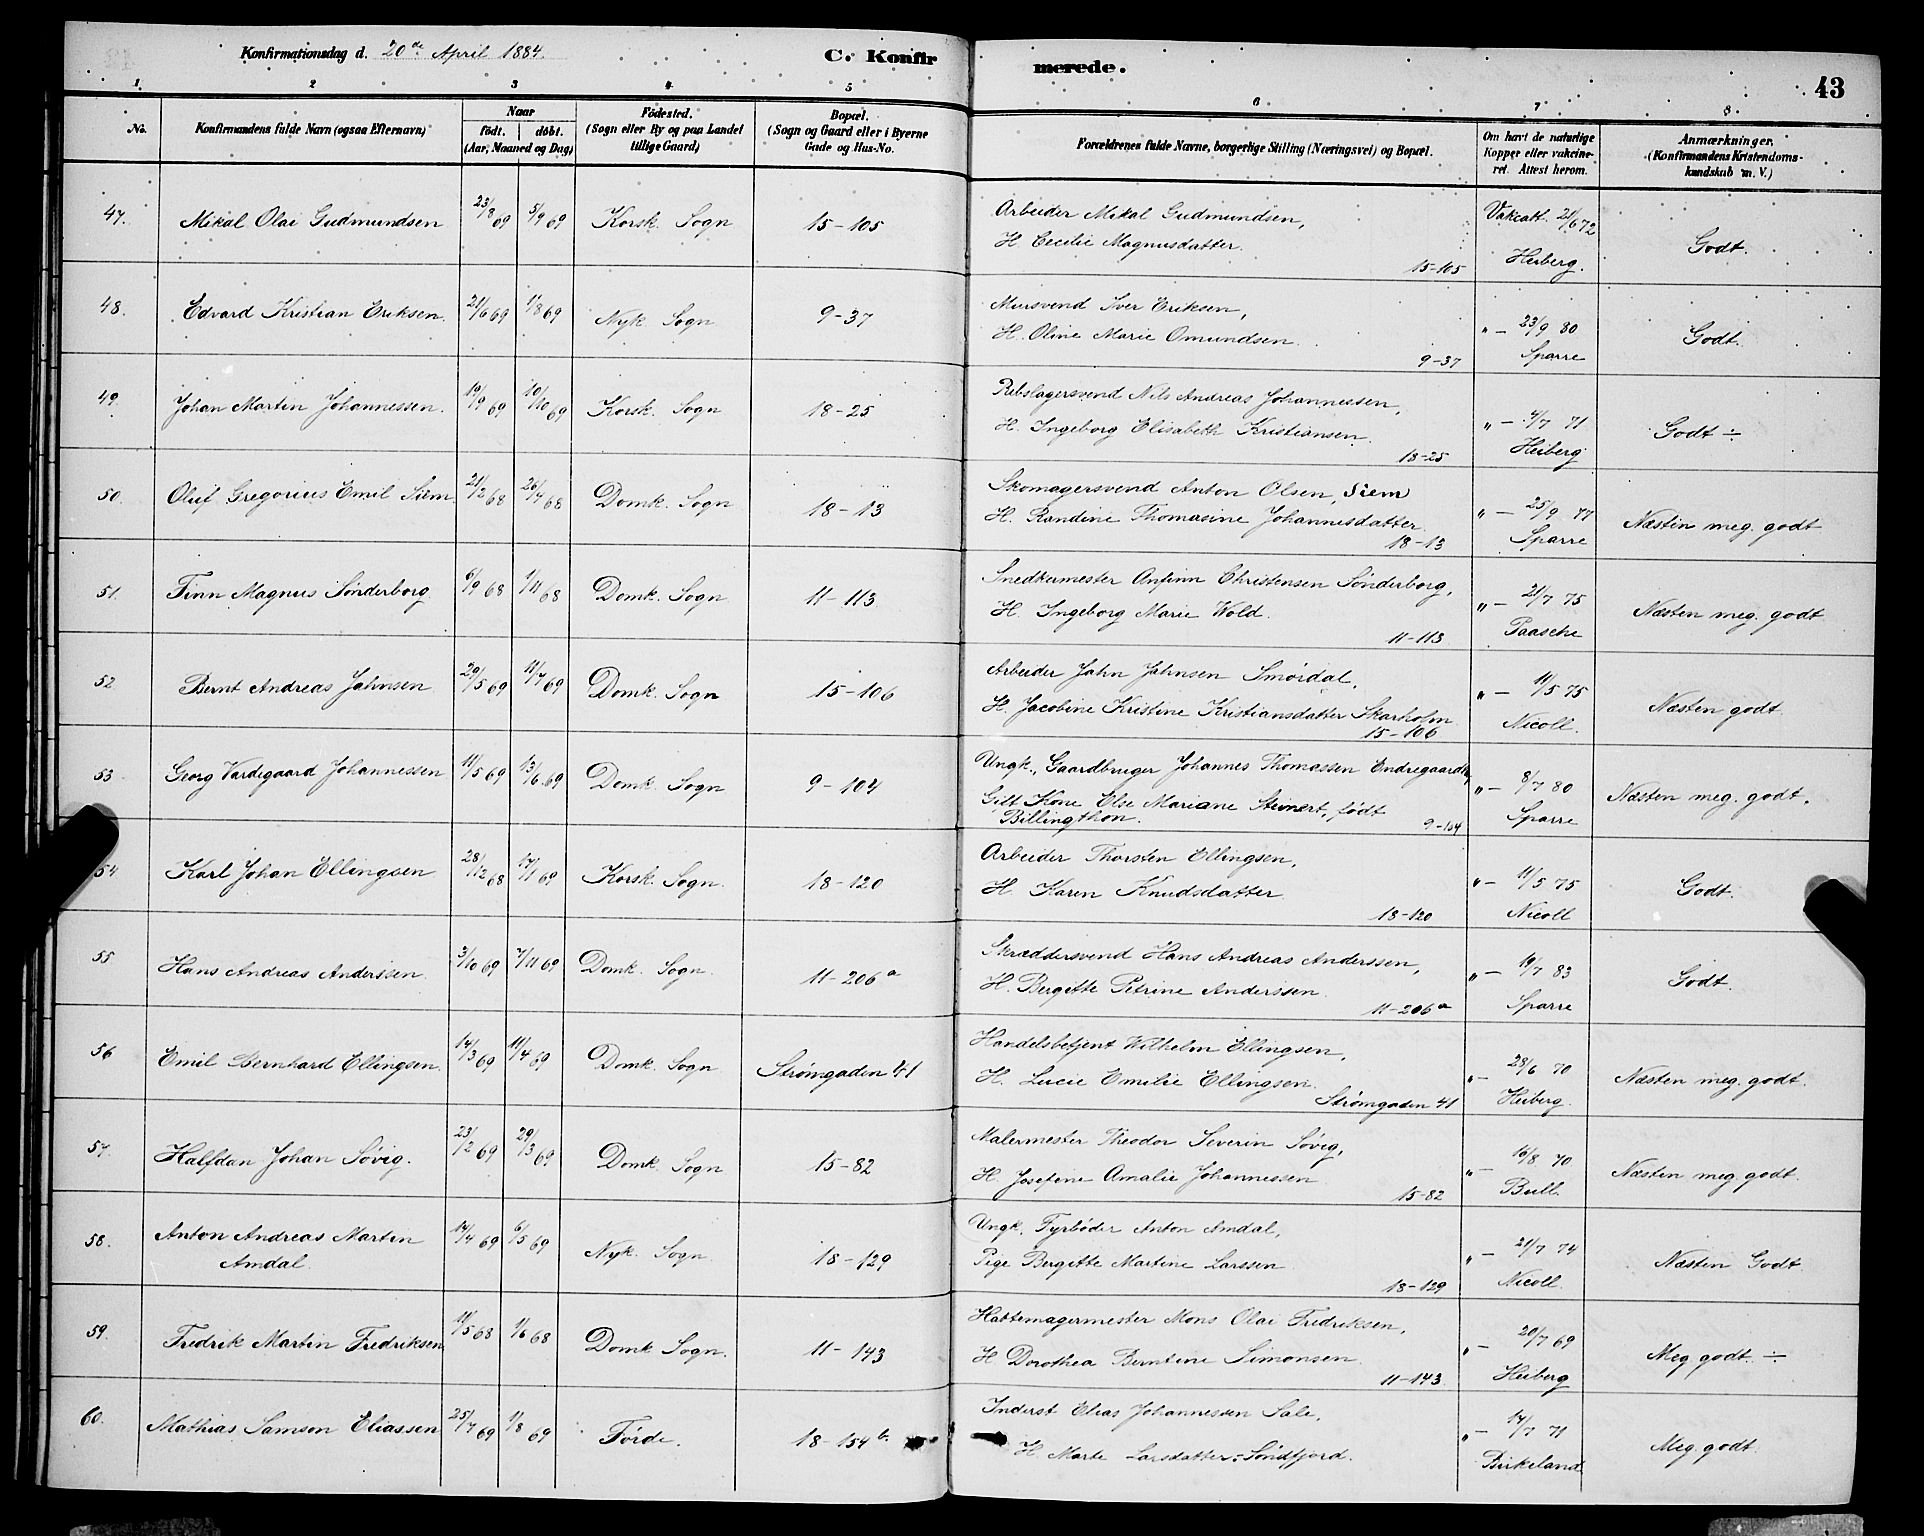 Konfirmationsdag d. 20de April 1884. C. Konfirmerede. 43
1. 2 3 4 5 6 7 8
No. Konfirmandens fulde Navn (ogsaa Efternavn) Naar født. døbt. (Aar, Maaned og Dag) Fødested. (Sogn eller By og paa Landet tillige Gaard) Bopæl. (Sogn og Gaard eller i Byerne Gade og Hus-No. Forældrenes fulde Navne, borgerlige Stilling (Næringsvei) og Bopæl. Om havt de naturlige Kopper eller vakcineret. Attest herom. Anmærkninger. (Konfirmandens Kristendomskundskab m. V.)
47. Mikal Olai Gudmundsen 23/8 69 5/9 69 Korsk. Sogn 15-105 Arbeider Mikal Gudmundsen, Vakcatt. 21/6 72
H. Cecilie Magnusdatter. 15-105 Heiberg. Godt.
48. Edvard Kristian Eriksen. 21/6 69 1/8 69 Nyk. Sogn 9-37 Mursvend Iver Eriksen, " - 23/9 80
H. Oline Marie Omundsen. 9-37 Sparre Godt.
49. Johan Martin Johannessen. 19/9 69 10/10 69 Korsk. Sogn 18-25 Rebslagersvend Nils Andreas Johannessen, " - 4/7 71
H. Ingeborg Elisabeth Kristiansen. 18-25 Heiberg Godt ÷
50. Oluf Gregorius Emil Siem 21/2 68 26/4 68 Domk. Sogn 18-13 Skomagersvend Anton Olsen, Siem " - 25/9 77
H. Randine Thomasine Johannesdatter 18-13 Sparre Næsten meg. godt
51. Finn Magnus Sønderborg 6/9 68 1/11 68 Domk. Sogn 11-113 Snedkermester Anfinn Christensen Sønderborg, " - 21/7 75
H. Ingeborg Marie Wold. 11-113 Paasche Næsten meg. godt
52. Bernt Andreas Jahnsen 29/5 69 11/7 69 Domk. Sogn 15-106 Arbeider Jahn Jahnsen Smørdal, " - 11/5 75
H. Jacobine Kristine Kristiansdatter Skarholm 15-106 Nicoll. Næsten godt
53 Georg Vardegaard Johannessen 11/5 69 13/6 69 Domk. Sogn 9-104 Ungk., Gaardbruger Johannes Thomassen Endregaard " - 8/7 80
Gift Kone Else Mariane Steinert, født
Billingthon. 9-104 Sparre Næsten meg. godt.
54 Karl Johan Ellingsen 28/12 68 17/1 69 Korsk. Sogn. 18-120 Arbeider Thorsten Ellingsen, " - 11/5 75
H. Karen Knudsdatter 18-120 Nicoll Godt.
55 Hans Andreas Anderssen. 3/10 69 7/11 69 Domk. Sogn. 11-206a Skræddersvend Hans Andreas Anderssen, " - 19/7 83
H. Bergitte Petrine Anderssen. 11-206a Sparre Godt.
56 Emil Bernhard Ellingsen. 14/3 69 11/4 69 Domk. Sogn Strømgaden 41 Handelsbetjent Wilhelm Ellingsen, " - 28/6 70
H. Lucie Emilie Ellingsen. Strømgaden 41 Heiberg. Næsten meg. godt.
57. Halfdan Johan Søvig. 23/2 69 29/3 69 Domk. Sogn 15-82 Malermester Theodor Severin Søvig, " - 16/8 70
H. Josefine Amalie Johannessen 15-82 Bull. Næsten meg. godt.
58. Anton Andreas Martin
Amdal. 14/4 69 6/5 69 Nyk. Sogn 18-129 Ungk. Fyrbøder Anton Amdal, " - 21/7 74
Pige Bergitte Martine Larssen 18-129 Nicoll. Næsten Godt
59. Fredrik Martin Fredriksen 11/5 68 1/6 68 Domk Sogn. 11-143 Hattemagermester Mons Olai Fredriksen, " - 20/7 69
H Dorothea Berntine Simonsen. 11-143 Heiberg Meg godt. ÷
60. Mathias Samson Eliassen 25/7 69 1/8 69 Førde. 18-154b. Inderst Elias Johannessen Sale, " - 17/7 71
H Marte Larsdatter - Søndfjord. Birkeland Meg. godt.